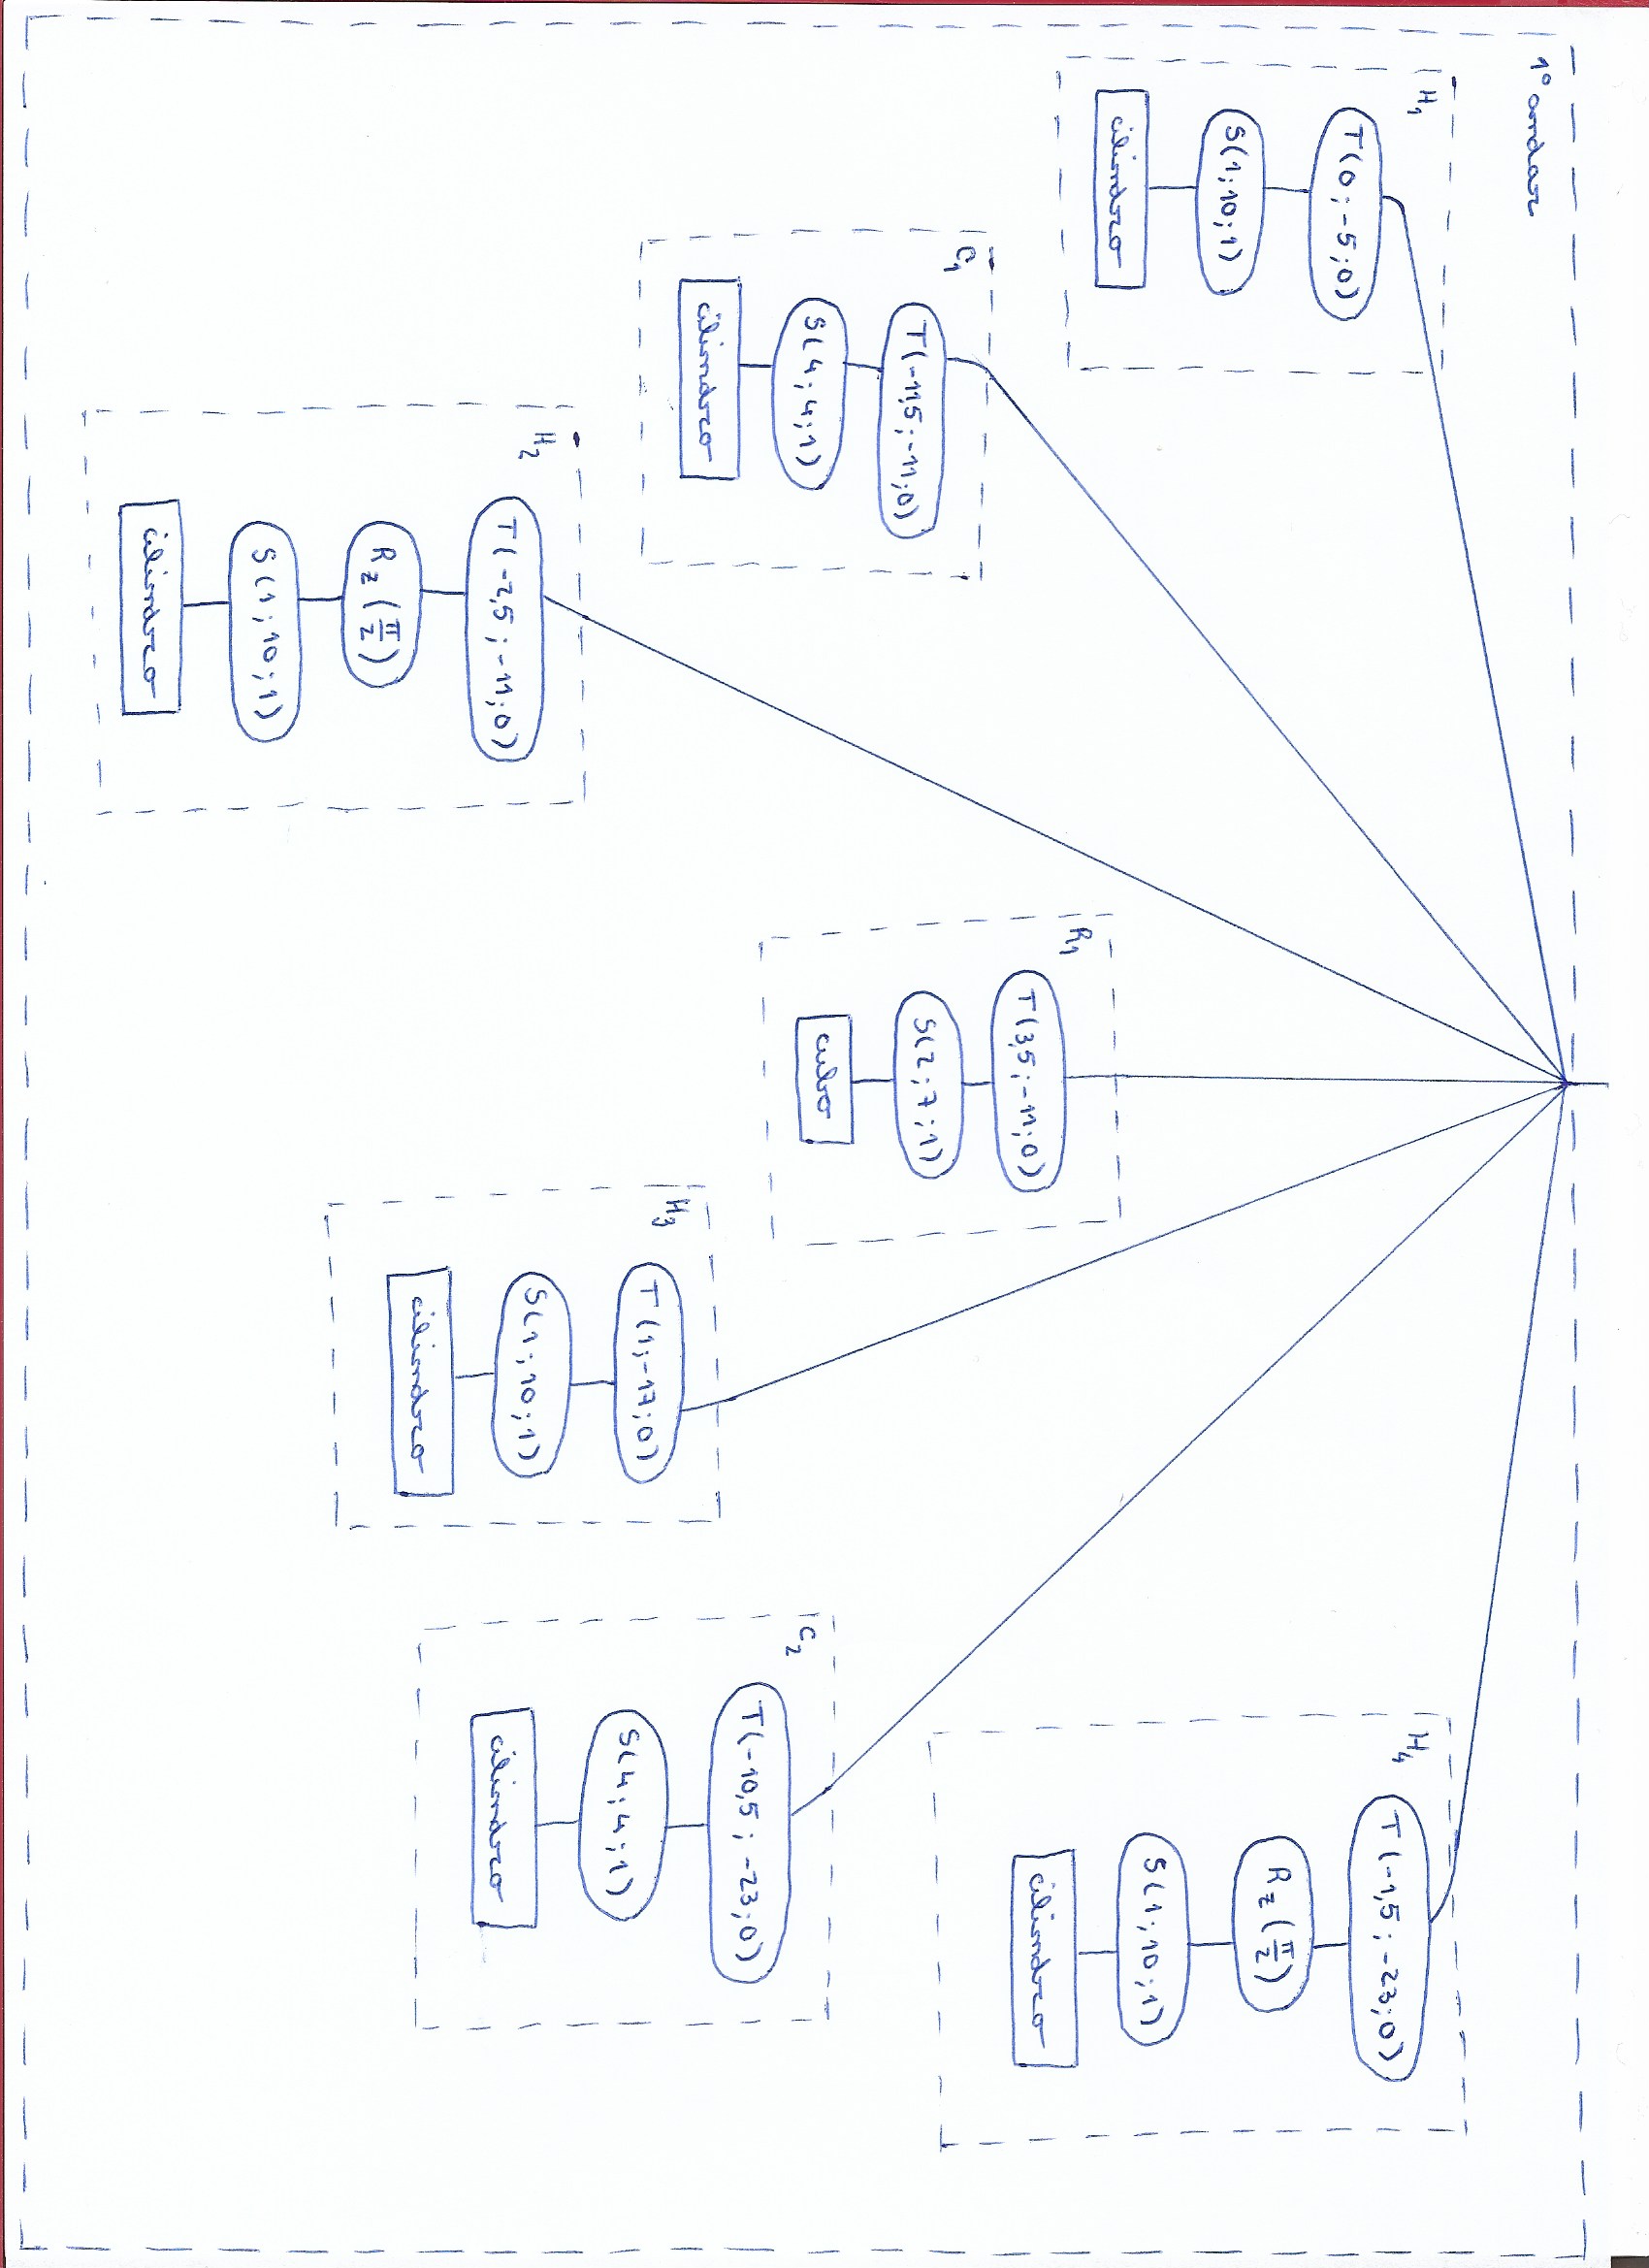 1º andar
H1
T(0; -5; 0)
S(1; 10; 1)
cilindro
C1
T(-11,5; -11; 0)
S(4; 4; 1)
cilindro
H2
T(-2,5; -11; 0)
Rz(π/2)
S(1; 10; 1)
cilindro
R1
T(3,5; -11; 0)
S(2; 7; 1)
cubo
H3
T(1; -17; 0)
S(1; 10; 1)
cilindro
C2
T(-10,5; -23; 0)
S(4; 4; 1)
cilindro
H4
T(-1,5; -23; 0)
Rz(π/2)
S(1; 10; 1)
cilindro